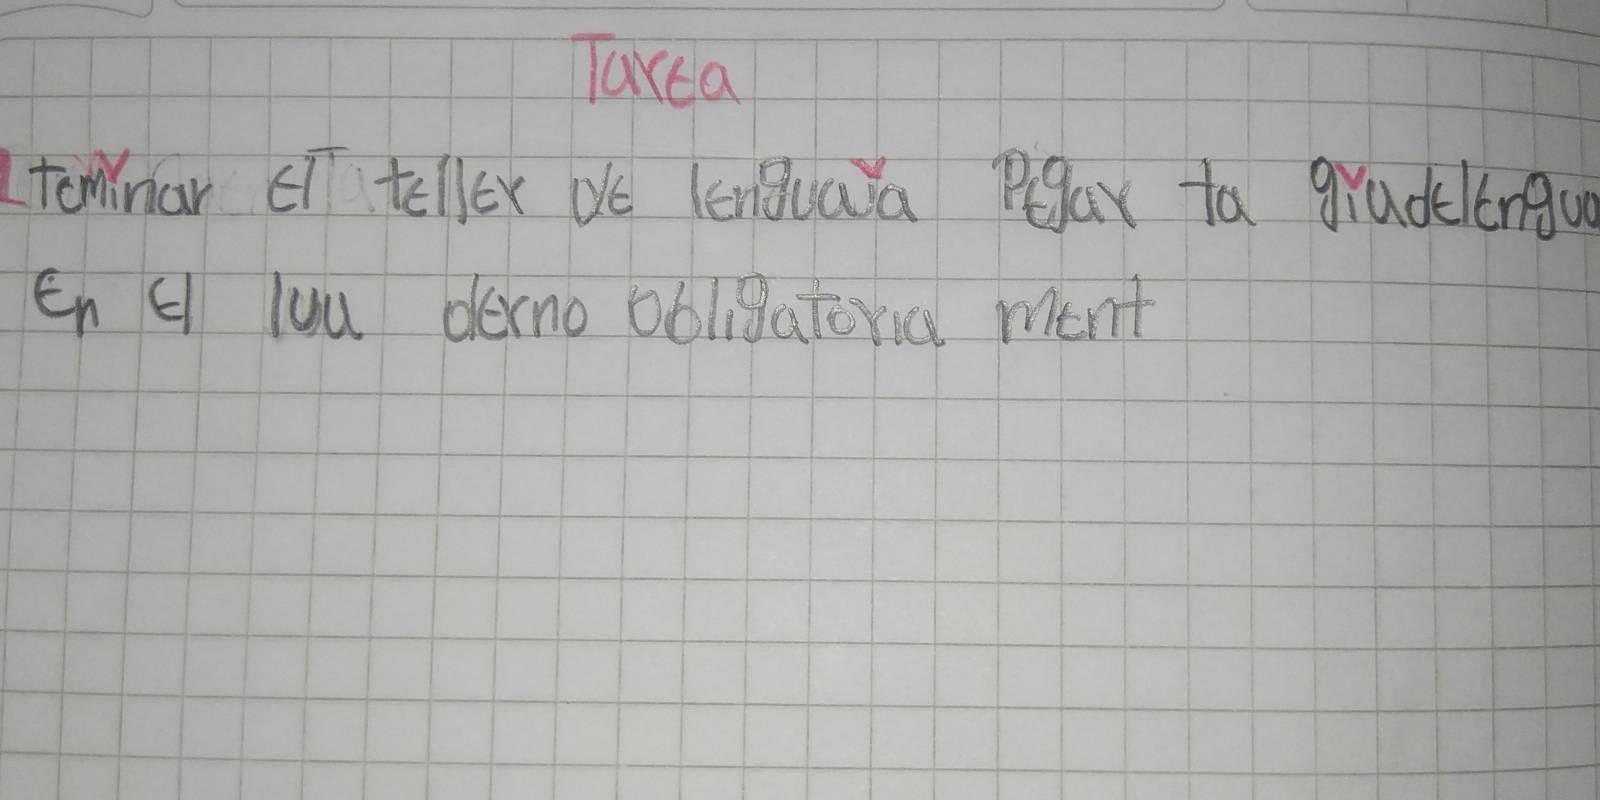 Tarea
teminar El teller de lenguaja Pegar ta giadelengua
En el luu derno obligatoria ment